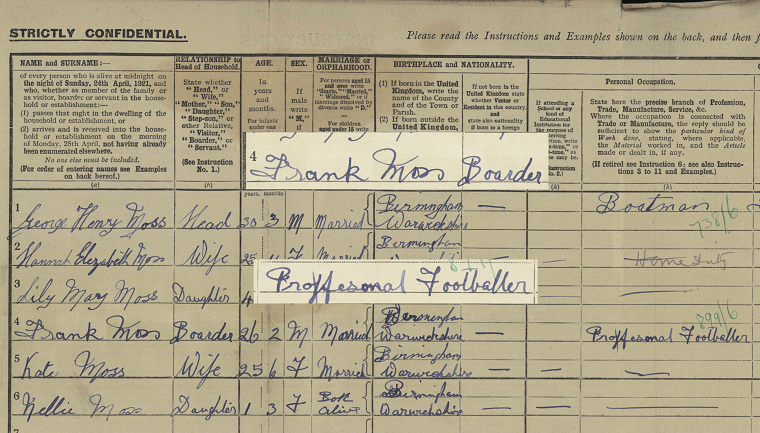 STRICTLY CONFIDENTIAL.
Please read the Instructions and Examples shown on the back, and then f
NAME and SURNAME:—
of every person who is alive at midnight on
the night of Sunday, 24th April, 1921, and
who, whether as member of the family or
as visitor, boarder or servant in the household
or establishment—
(1) passes that night in the dwelling of
the household or establishment, or
(2) arrives and is received into the household
or establishment on the morning
of Monday, 25th April, not having already
been enumerated elsewhere.
No one else must be included.
(For order of entering names see Examples
on back hereof.)
(a)
RELATIONSHIP to
Head of Household.
State whether
"Head," or
"Wife,"
"Mother," "Son,"
"Daughter,"
"Step-son," or
other Relative,
"Visitor,"
"Boarder," or
"Servant."
(See Instruction
No. 1.)
(b)
AGE.
In
years
and
months.
For infants
under one
years. months.
SEX.
If
male
write
"M,"
if
MARRIAGE or
ORPHANHOOD.
For persons aged 15
and over write
"Single," "Married,"
"Widowed," or if
marriage dissolved
by divorce write "D."
For children
aged under 15 write
BIRTHPLACE and NATIONALITY.
(1) If born in the United
Kingdom, write the name
of the County and of the
Town or Parish.
(2) If born outside the
United Kingdom,
If not born in the
United Kingdom
state whether Visitor or
Resident in this country,
and
also nationality
if born in a foreign
If attending a
School or any
kind of
Educational
Personal Occupation.
State here the precise branch of Profession,
Trade, Manufacture, Service, &c.
Where the occupation is connected with
Trade or Manufacture, the reply should be
sufficient to show the particular kind of
Work done, stating, where applicable,
the Material worked in, and the Article
made or dealt in, if any.
(If retired see Instruction 6: see also Instructions
3 to 11 and Examples).
4 Frank Moss Boarder
1 George Henry Moss Head 30 3 M Married Birmingham Warwickshire — Boatman 738/6
2 Hannah Elizabeth Moss Wife 25 F Married Birmingham — Home Duty
Proffesonal Footballer
3 Lily Mary Moss Daughter 4
4 Frank Moss Boarder 26 2 M Married Birmingham Warwickshire — Proffesonal Footballer 899/6
5 Kate Moss Wife 25 6 F Married Birmingham Warwickshire — — —
6 Nellie Moss Daughter 1 3 F Both Alive Birmingham Warwickshire — — —